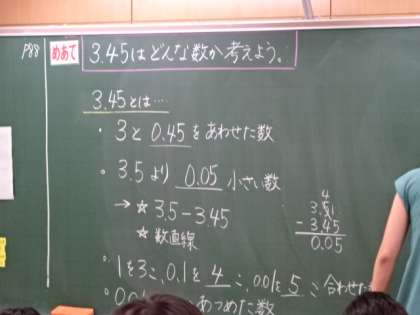 P88
めあて 3.45はどんな数か考えよう。
3.45とは…
・3と0.45をあわせた数
・3.5より 0.05 小さい数
→ ☆ 3.5－3.45
☆ 数直線
4
3.51
－3.45
0.05
・1を3こ、0.1を4こ、0.01を5こ合わせた
・0.01 あつめた数